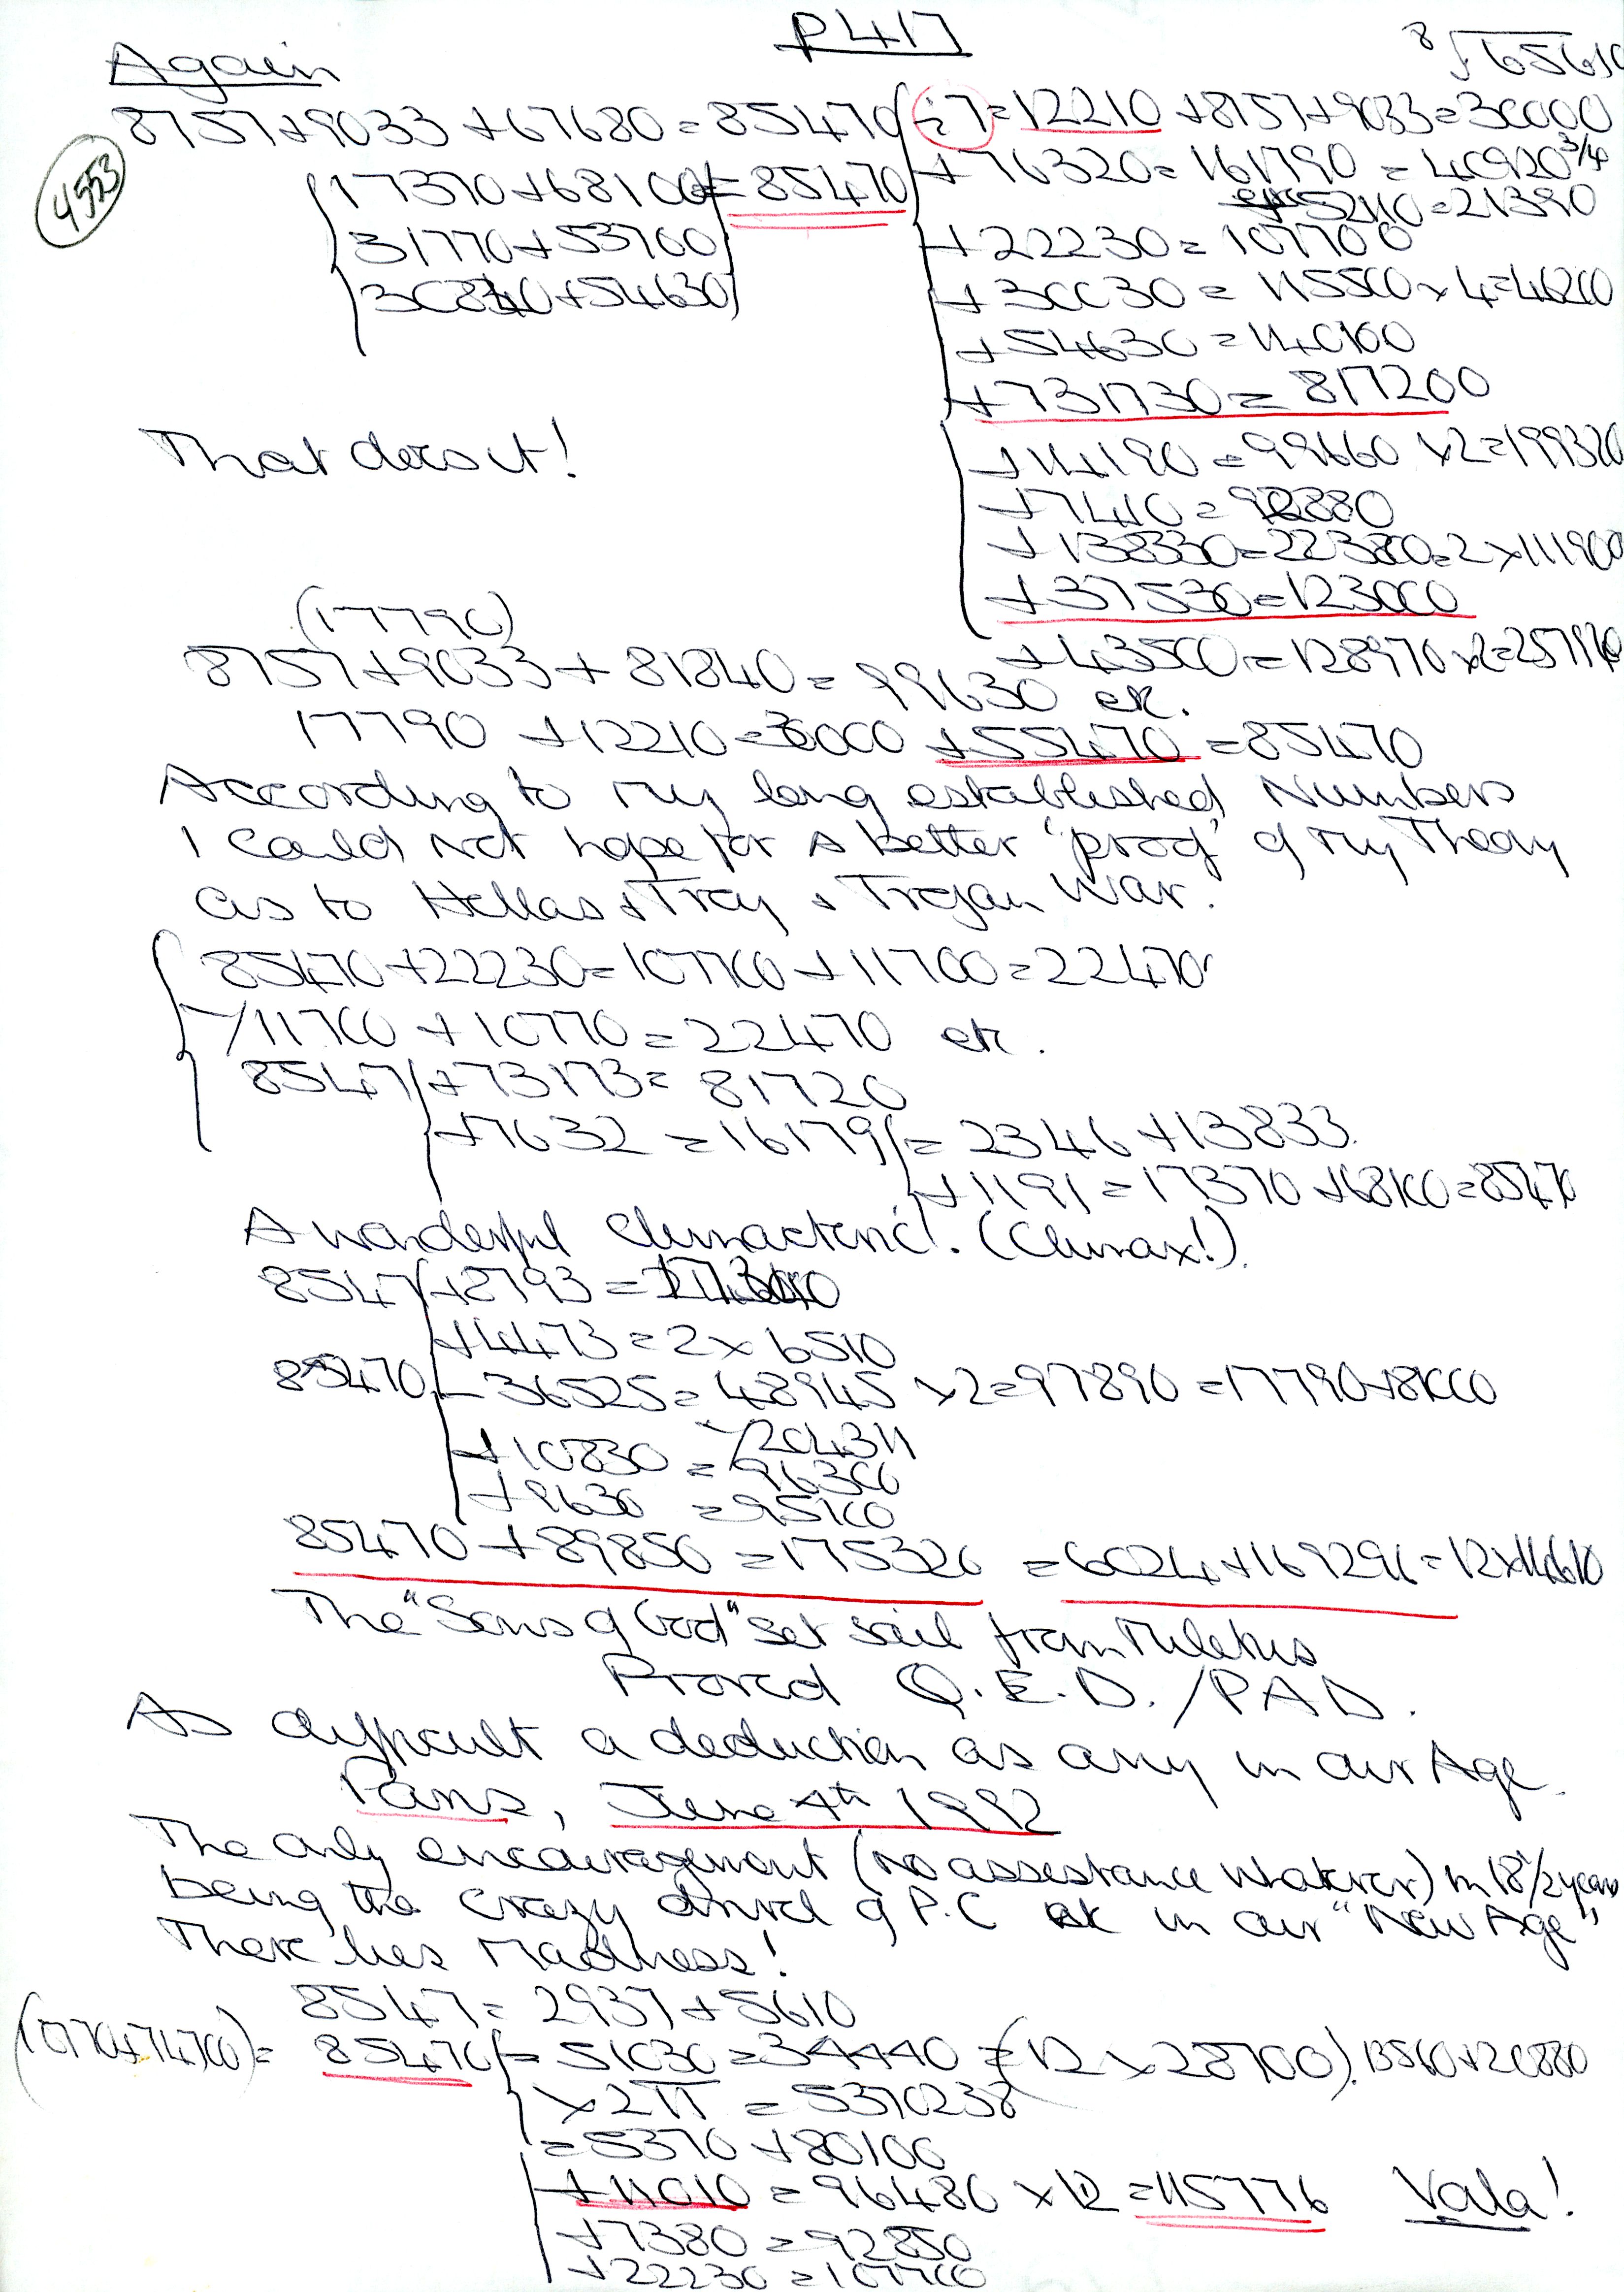 P417
Again
⁸√65610
8757+9033+67680=85470 ÷7=12210+8757+9033=30000
4553
17370+68100=85470 +76320=161790=40920 3/4
52110=21390
31770+53700 +22230=107700
30840+54630 +30030=115500×4=46200
+54630=140100
+731730=817200
That does it!
+14190=99660 ×2=199320
+7410=92880
+138330=223800=2×111900
+37530=123000
(17790)
+43500=128970×2=257940
8757+9033+81840=99630 etc.
17790+12210=30000+55470=85470
According to my long established Numbers
I could not hope for a better 'proof' of my Theory
as to Hellas & Troy & Trojan War.
85470+22230=107700+11700=22470
/11700+10770=22470 etc.
8547+73173=81720
+7632=16179=2346+13833
+1191=17370+68100=85470
A wonderful Climacteric!. (Climax!).
8547+8793=
+4473=2×6510
85470-36525=48945×2=97890=17790+8000
/204311
+10830=96300
+9630=95100
85470+89850=175320=6024+169296=12×14610
The "Sons of God" set sail from Miletus
Proved Q.E.D./PAD.
As difficult a deduction as any in our Age.
Paris, June 4th 1992
The only encouragement (no assestance whatever) in 18 1/2 years
being the crazy drivel of P.C etc in our "New Age",
There lies Madness!
8547=2937+5610
(10770+74700)=85470=51030=34440=(12×28700).13560+20880
×2π=5370238
=5370+80100
+11010=96480×12=115776 Voila!
+7380=92850
+22230=107700